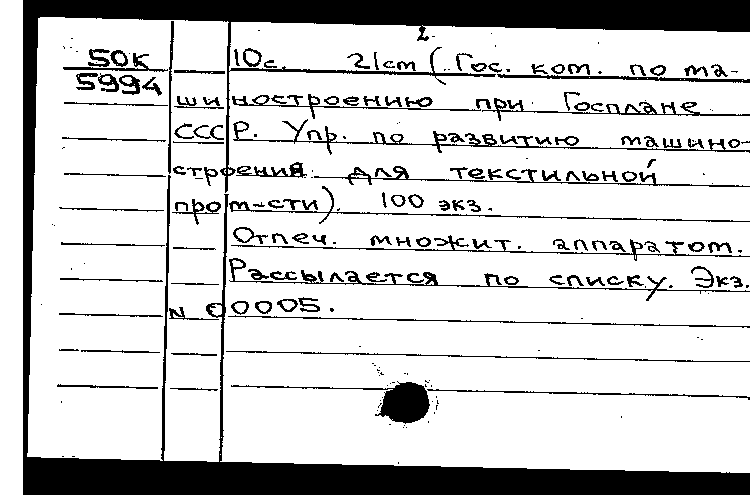 2.
50К 10с. 21cm (Гос. ком. по ма-
5994
шиностроению при Госплане
СССР. Упр. по развитию машино-
строения для текстильной
пром-сти). 100 экз.
Отпеч. множит. аппаратом.
Рассылается по списку. Экз.
N 00005.